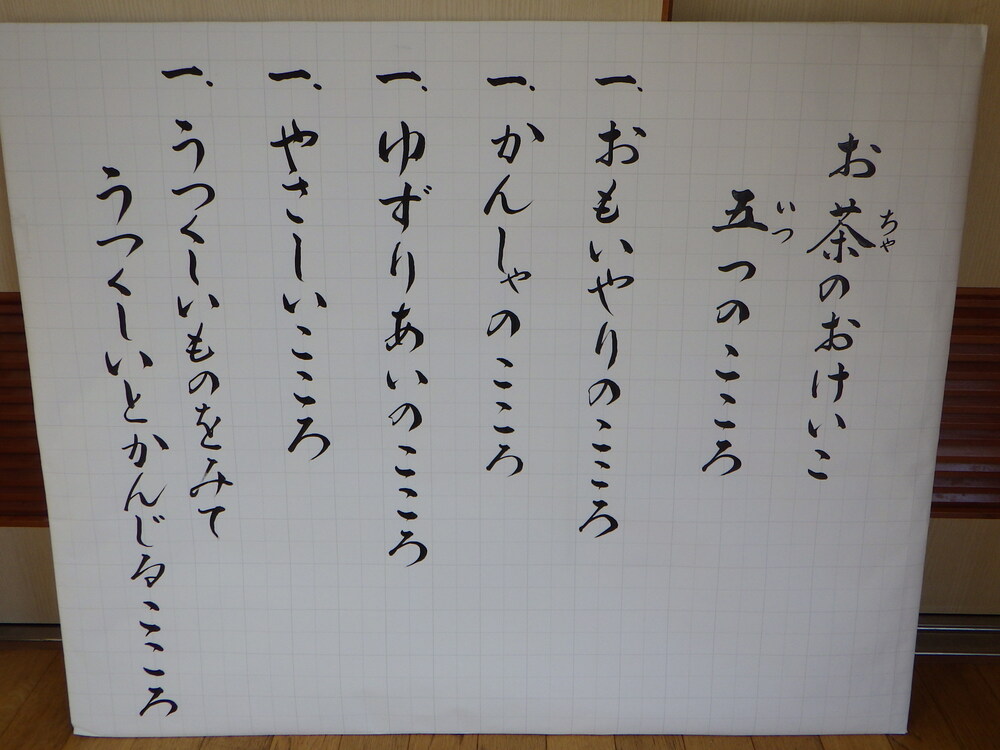 お茶のおけいこ
ちゃ
五つのこころ
いつ
一、おもいやりのこころ
一、かんしゃのこころ
一、ゆずりあいのこころ
一、やさしいこころ
一、うつくしいものをみて
うつくしいとかんじるこころ